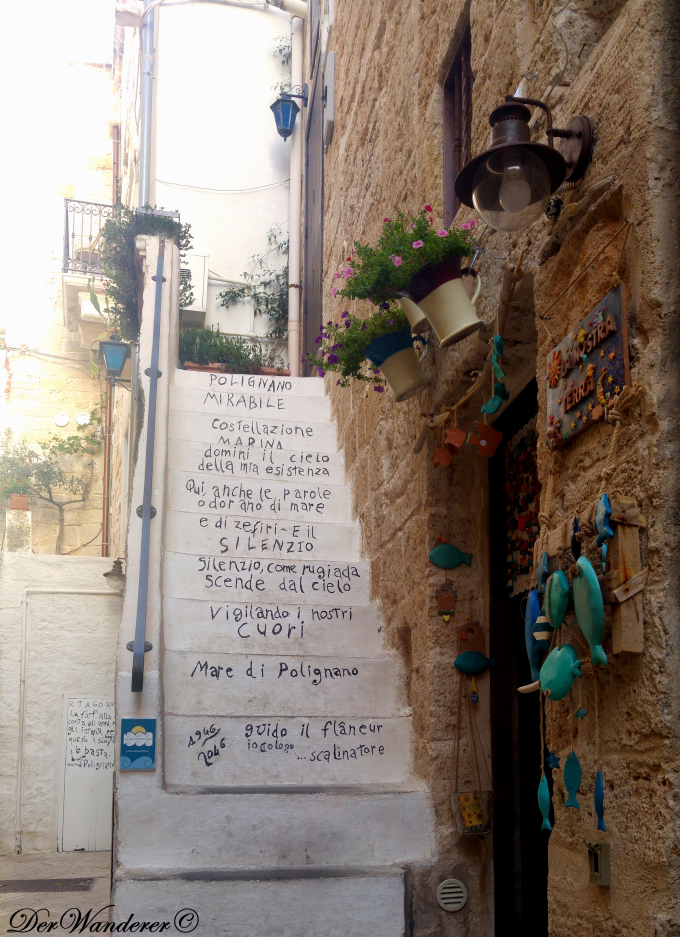 POLIGNANO
MIRABILE
Costellazione
MARINA
domini il cielo
della mia esistenza
Qui, anche le parole
odorano di mare
e di zefiri - E il
SILENZIO
Silenzio, come rugiada
scende dal cielo
Vigilando i nostri
cuori
Mare di Polignano
1946
2046
guido il flâneur
...scalinatore
LA NOSTRA
TERRA
RTAGOR
La farfalla
conta
gli istanti
basta
DerWanderer©